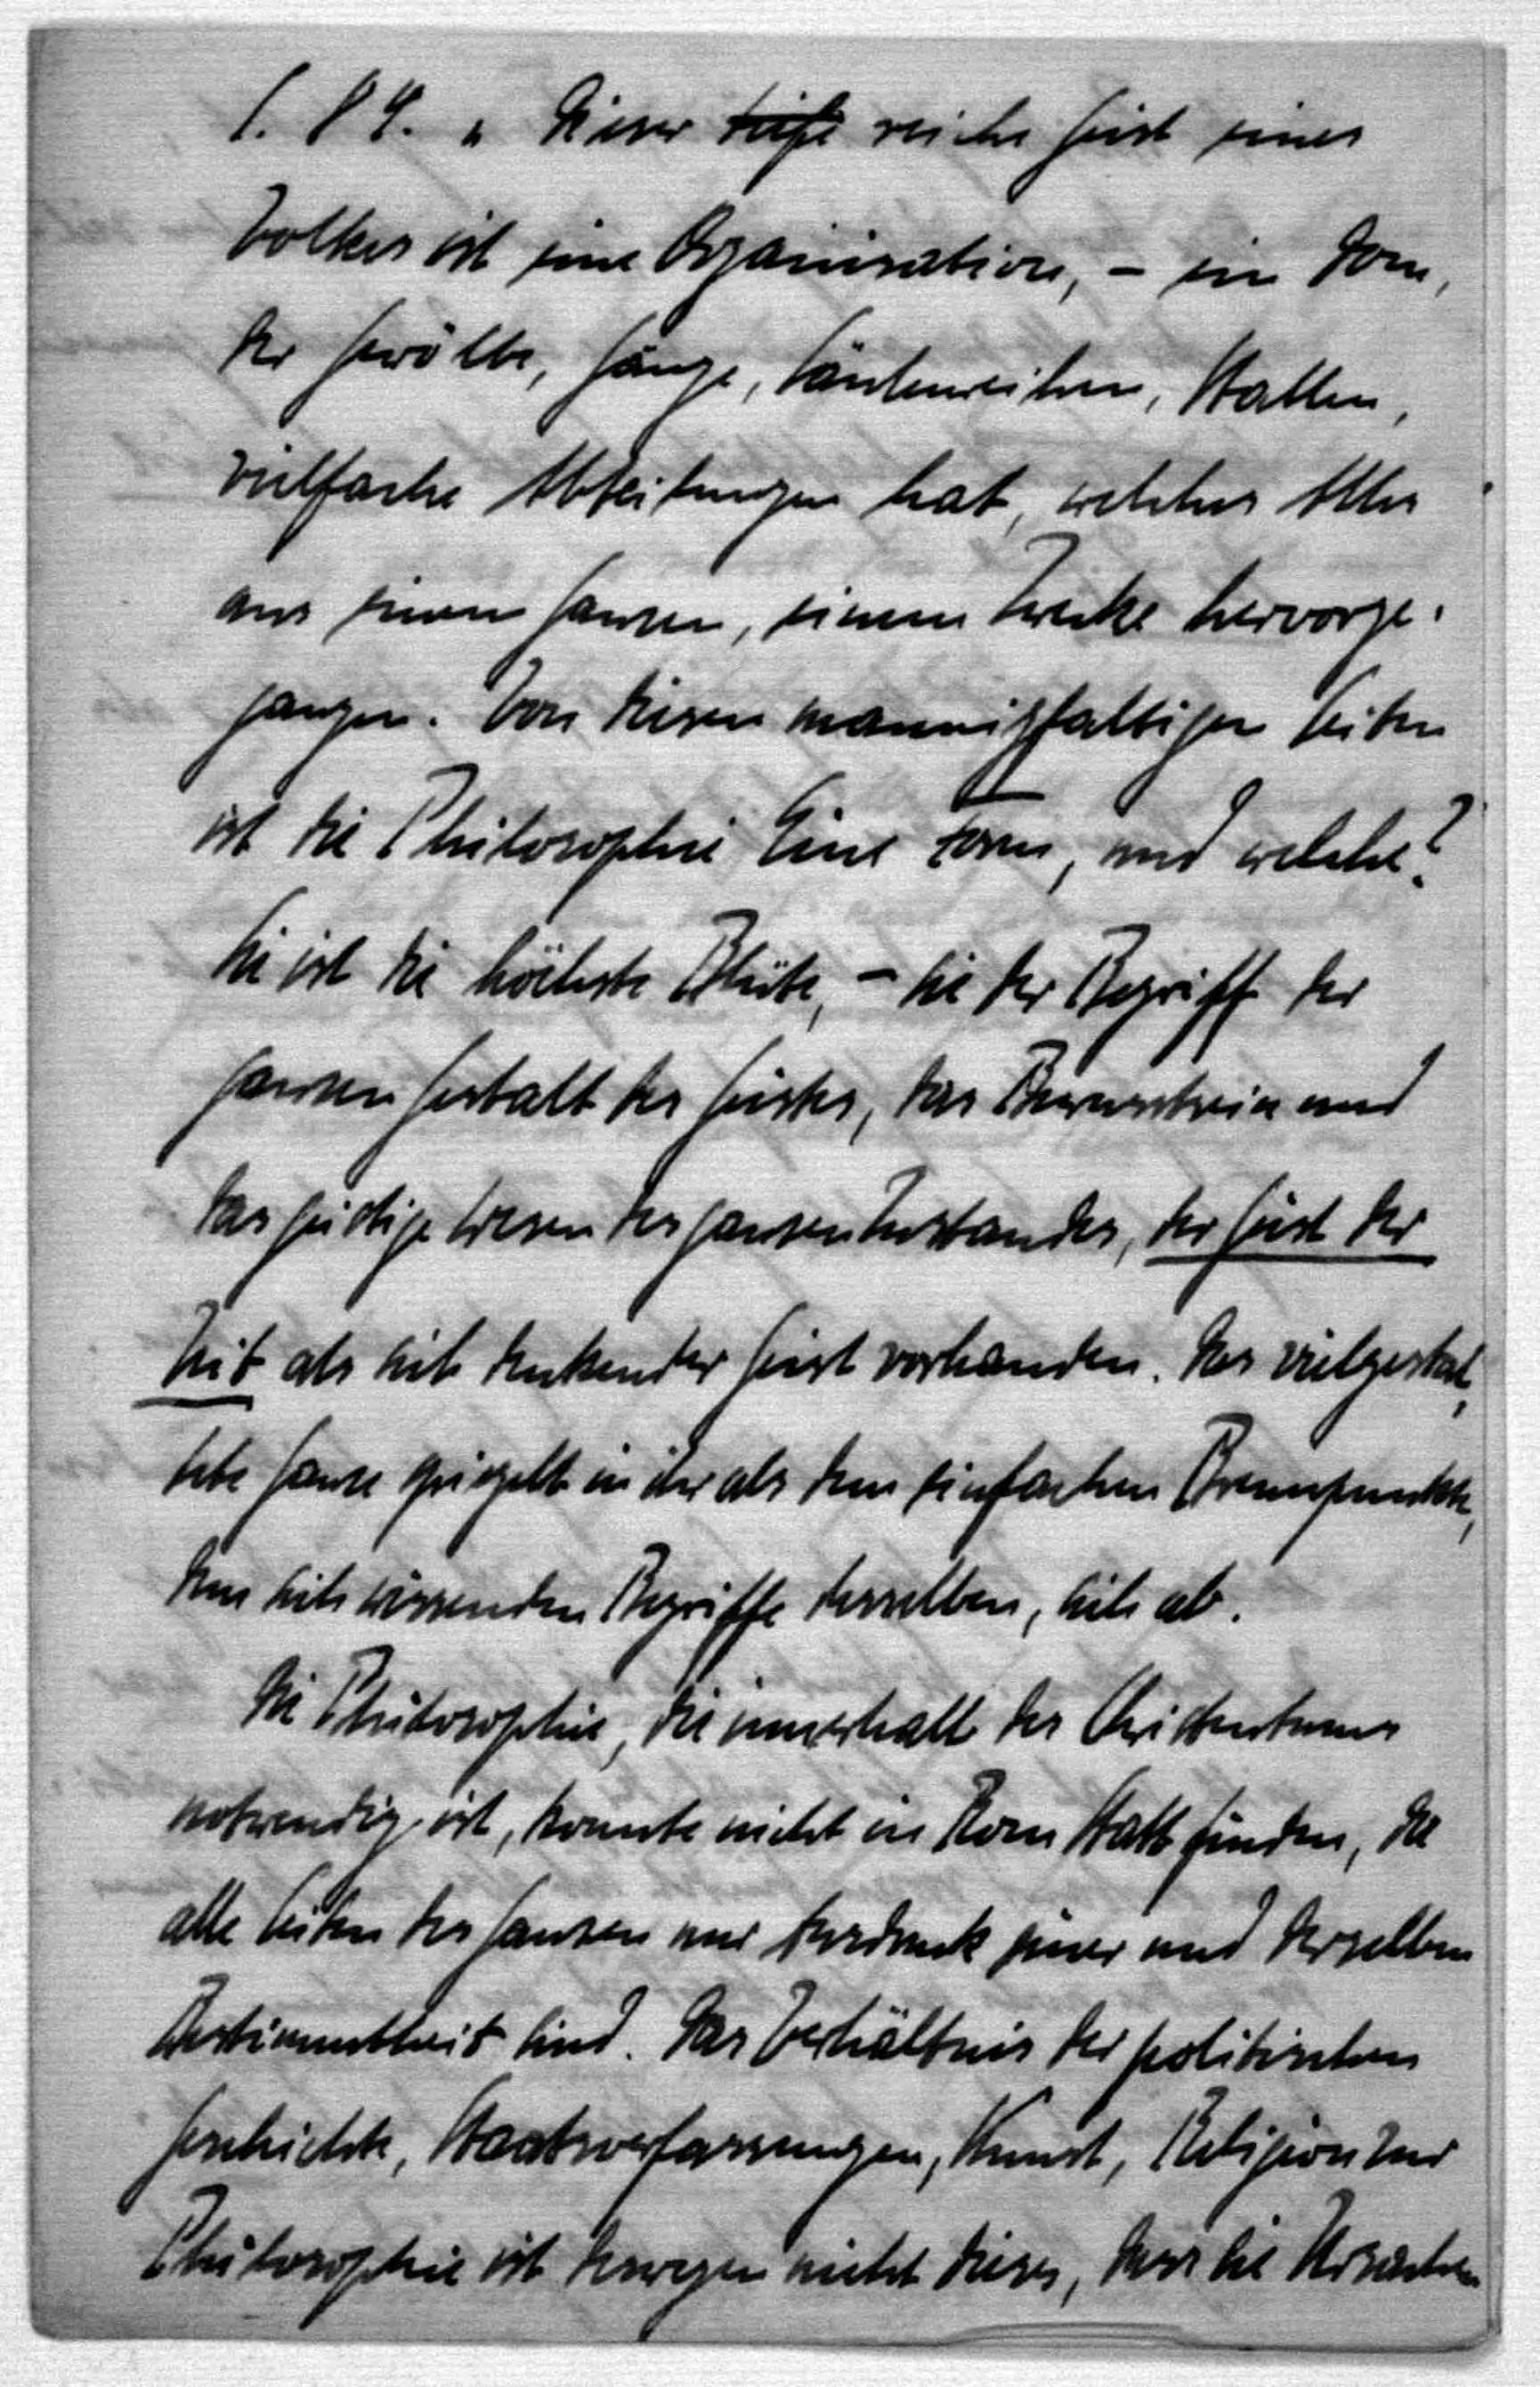 S. 84. „ Dieser <s>tiefe</s> reiche Geist eines
Volkes ist eine Organisation, – ein Dom,
der Gewölbe, Gänge, Säulenreihen, Hallen,
vielfache Abteilungen hat, welches Alles
aus einem Ganzen, einem Zwecke hervorge-
gangen. Von diesen mannigfaltigen Seiten
ist die Philosophie Eine Form, und welche?
Sie ist die höchste Blüte, – sie der Begriff der
ganzen Gestalt des Geistes, das Bewusstsein und
das geistige Wesen des ganzen Zustandes, der Geist der
Zeit als sich denkender Geist vorhanden. Das vielgestal-
tete Ganze spiegelt in ihr als dem einfachen Brennpunkte,
dem sich wissenden Begriffe desselben, sich ab.
Die Philosophie, die innerhalb des Christentums
notwendig ist, konnte nicht in Rom Statt finden, da
alle Seiten des Ganzen nur Ausdruck einer und derselben
Bestimmtheit sind. Das Verhältnis der politischen
Geschichte, Staatsverfassungen, Kunst, Religion zur
Philosophie ist deswegen nicht dieses, dass sie Ursachen